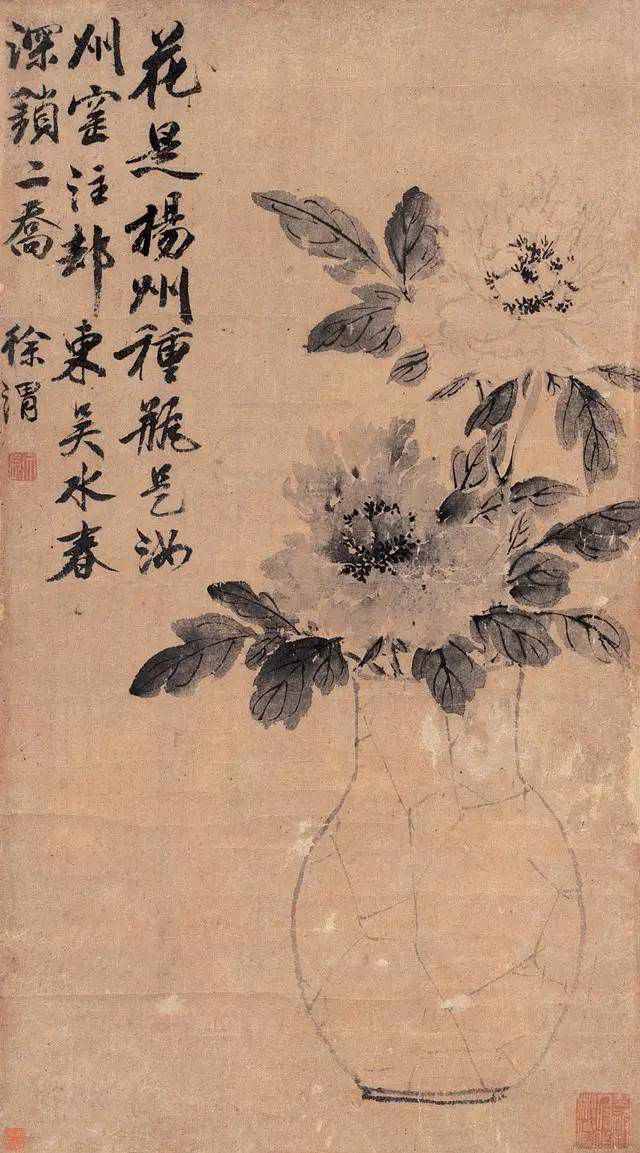 花是楊州種瓶是汝
州窰注却東吳水春
深鎖二喬
徐渭